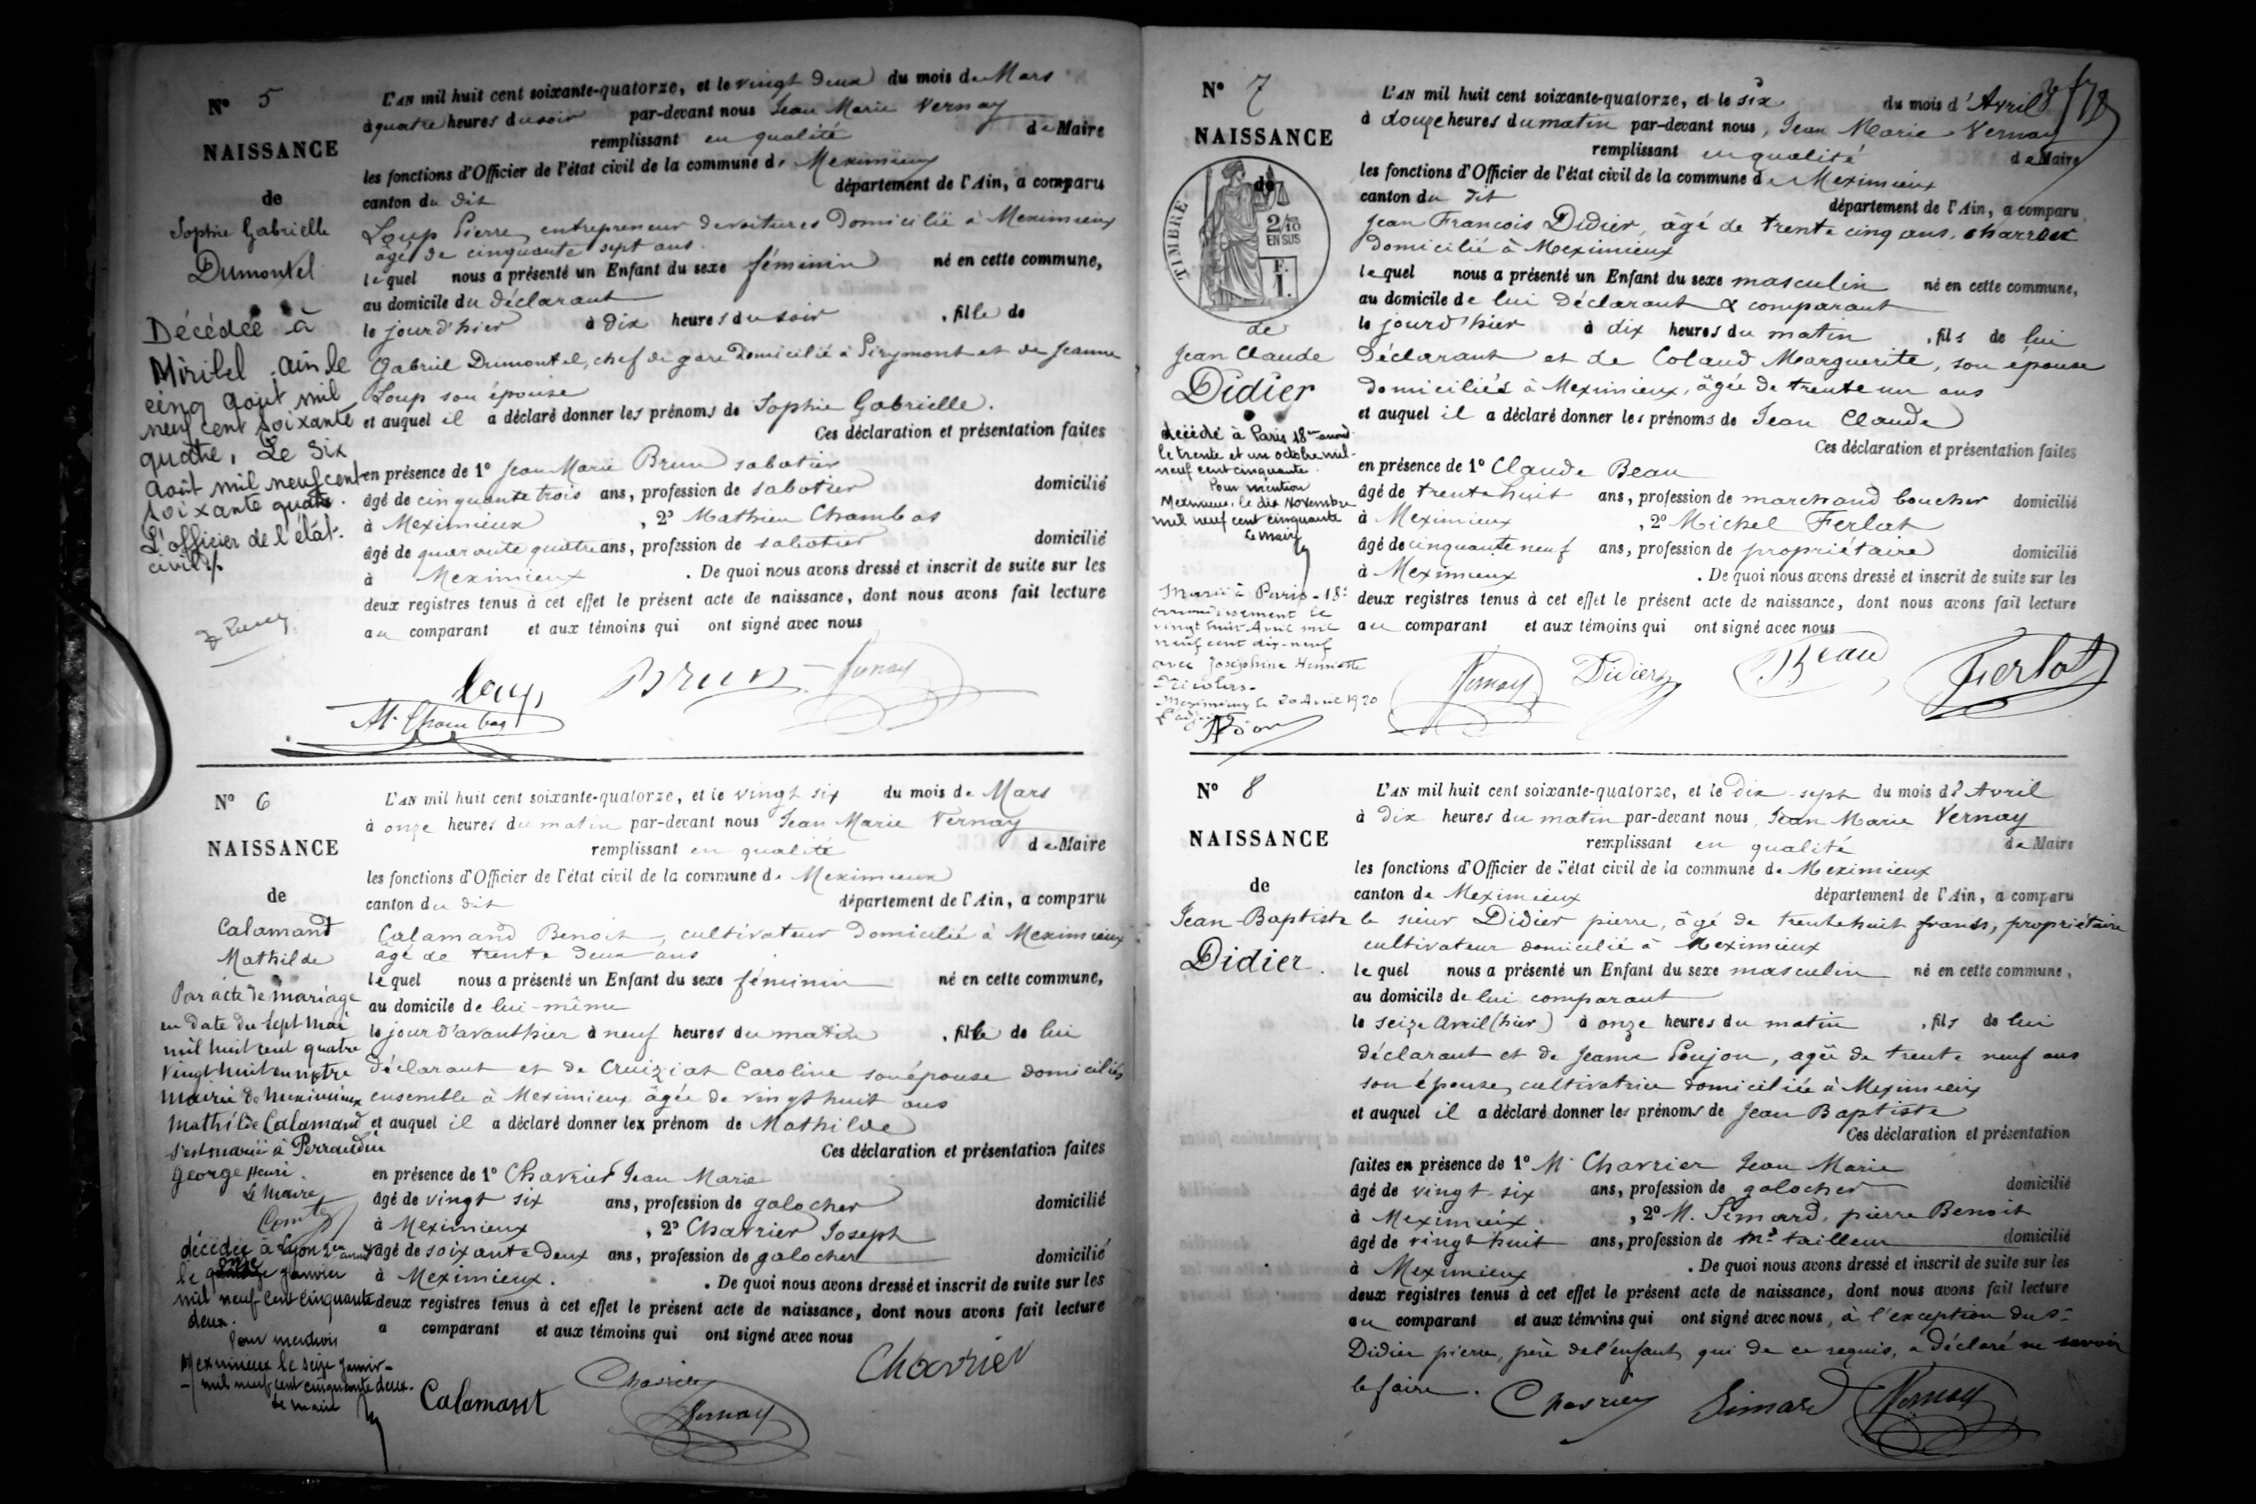 N° 5
NAISSANCE
de
Sophie Gabrielle
Dumontel
Décédée à
Miribel Ain le
cinq août mil
neuf cent soixante
quatre, Le six
août mil neuf cent
soixante quatre.
L'officier de l'état-
civil.
L'AN mil huit cent soixante-quatorze, et le vingt deux du mois de Mars
à quatre heures du soir par-devant nous Jean Marie Vernay
remplissant en qualité de Maire
les fonctions d'Officier de l'état civil de la commune de Meximieux
canton du dit département de l'Ain, a comparu
Loup Pierre, entrepreneur de voitures domicilié à Meximieux
âgé de cinquante sept ans.
lequel nous a présenté un Enfant du sexe féminin né en cette commune,
au domicile du déclarant
le jour d'hier à dix heures du soir, fille de
Gabriel Dumontel, chef de gare domicilié à Pirymont et de Jeanne
Loup son épouse
et auquel il a déclaré donner les prénoms de Sophie Gabrielle.
Ces déclaration et présentation faites
en présence de 1° Jean Marie Brun sabotier
âgé de cinquante trois ans, profession de sabotier domicilié
à Meximieux, 2° Mathieu Chambas
âgé de quarante quatre ans, profession de sabotier domicilié
à Meximieux. De quoi nous avons dressé et inscrit de suite sur les
deux registres tenus à cet effet le présent acte de naissance, dont nous avons fait lecture
au comparant et aux témoins qui ont signé avec nous
Loup Brun Vernay
M. Chambas
N° 6
NAISSANCE
de
Calamand
Mathilde
Par acte de mariage
en date du sept mai
mil huit cent quatre
vingt huit en notre
Mairie de Meximieux
Mathilde Calamand
s'est mariée à Perraudin
George Henri.
Le Maire
Comte
décédée à Lyon 2e arrondt
le janvier
mil neuf cent cinquante
deux.
Pour mention
Meximieux le seize janvier
mil neuf cent cinquante deux.
Le maire
L'AN mil huit cent soixante-quatorze, et le vingt six du mois de Mars
à onze heures du matin par-devant nous Jean Marie Vernay
remplissant en qualité de Maire
les fonctions d'Officier de l'état civil de la commune de Meximieux
canton du dit département de l'Ain, a comparu
Calamand Benoit, cultivateur domicilié à Meximieux
âgé de trente deux ans
lequel nous a présenté un Enfant du sexe féminin né en cette commune,
au domicile de lui-même
le jour d'avant hier à neuf heures du matin, fille de lui
déclarant et de Cruiziat Caroline son épouse domiciliés
ensemble à Meximieux âgée de vingt huit ans
et auquel il a déclaré donner lex prénom de Mathilde
Ces déclaration et présentation faites
en présence de 1° Chavrier Jean Marie
âgé de vingt six ans, profession de galocher domicilié
à Meximieux, 2° Chavrier Joseph
âgé de soixante deux ans, profession de galocher domicilié
à Meximieux. De quoi nous avons dressé et inscrit de suite sur les
deux registres tenus à cet effet le présent acte de naissance, dont nous avons fait lecture
a comparant et aux témoins qui ont signé avec nous
Calamant Chavrier Vernay Chavrier
N° 7
NAISSANCE
de
TIMBRE
2/10
EN SUS
F.
1.
de
Jean Claude
Didier
décédé à Paris 18e arrond
le trente et un octobre mil
neuf cent cinquante.
Pour mention
Meximieux, le dix Novembre
mil neuf cent cinquante
Le Maire
Marié à Paris - 18e
arrondissement le
vingt huit Avril mil
neuf cent dix-neuf
avec Joséphine Henriette
Nicolas.
Meximieux le 20 Avril 1920
L'adjoint
L'AN mil huit cent soixante-quatorze, et le six du mois d'Avril
à douze heures du matin par-devant nous, Jean Marie Vernay
remplissant en qualité de Maire
les fonctions d'Officier de l'état civil de la commune de Meximieux
canton du dit département de l'Ain, a comparu
Jean François Didier, âgé de trente cinq ans, charron
domicilié à Meximieux
lequel nous a présenté un Enfant du sexe masculin né en cette commune,
au domicile de lui déclarant & comparant
le jour d'hier à dix heures du matin, fils de lui
déclarant et de Coland Marguerite, son épouse
domiciliés à Meximieux, âgée de trente un ans
et auquel il a déclaré donner les prénoms de Jean Claude
Ces déclaration et présentation faites
en présence de 1° Claude Beau
âgé de trente huit ans, profession de marchand boucher domicilié
à Meximieux, 2° Michel Ferlat
âgé de cinquante neuf ans, profession de propriétaire domicilié
à Meximieux. De quoi nous avons dressé et inscrit de suite sur les
deux registres tenus à cet effet le présent acte de naissance, dont nous avons fait lecture
au comparant et aux témoins qui ont signé avec nous
Vernay Didier Beau Ferlat
N° 8
NAISSANCE
de
Jean-Baptiste
Didier.
L'AN mil huit cent soixante-quatorze, et le dix-sept du mois d'Avril
à dix heures du matin par-devant nous, Jean Marie Vernay
remplissant en qualité de Maire
les fonctions d'Officier de l'état civil de la commune de Meximieux
canton de Meximieux département de l'Ain, a comparu
le sieur Didier pierre, âgé de trente huit propriétaire
cultivateur domicilié à Meximieux
lequel nous a présenté un Enfant du sexe masculin né en cette commune,
au domicile de lui comparant
le seize avril (hier) à onze heures du matin, fils de lui
déclarant et de Jeanne Poujon, agée de trente neuf ans
son épouse, cultivatrice domiciliée à Meximieux
et auquel il a déclaré donner les prénoms de Jean Baptiste
Ces déclaration et présentation
faites en présence de 1° M. Chavrier Jean Marie
âgé de vingt-six ans, profession de galocher domicilié
à Meximieux, 2° M. Simard, pierre Benoit
âgé de vingt huit ans, profession de Md tailleur domicilié
à Meximieux. De quoi nous avons dressé et inscrit de suite sur les
deux registres tenus à cet effet le présent acte de naissance, dont nous avons fait lecture
au comparant et aux témoins qui ont signé avec nous, à l'exception du sr
Didier pierre, père de l'enfant, qui de ce requis, a déclaré ne savoir
le faire. Chavrier Simard Vernay